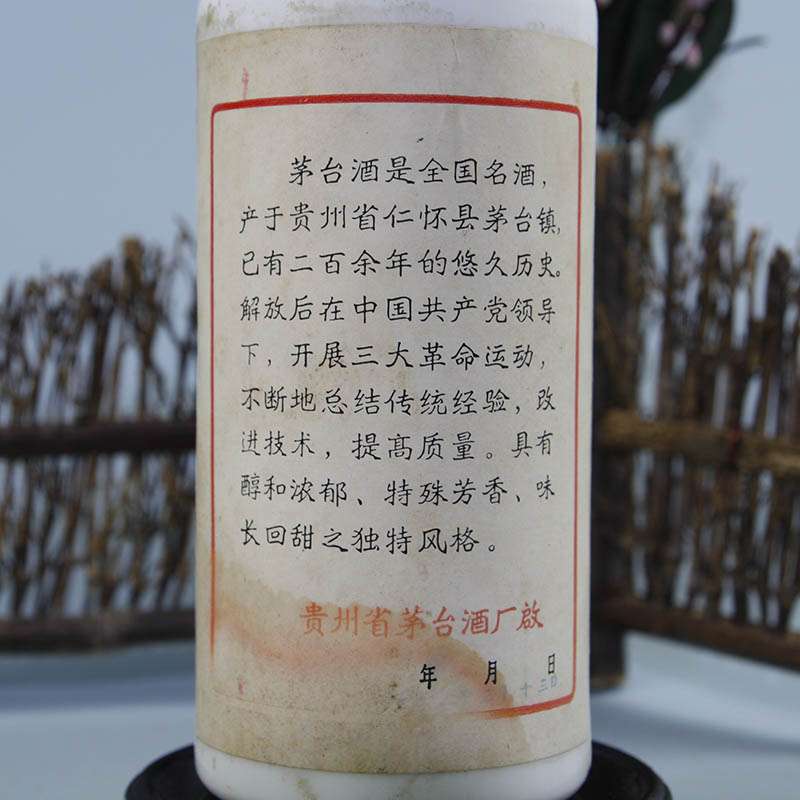 茅台酒是全国名酒，
产于贵州省仁怀县茅台镇，
已有二百余年的悠久历史。
解放后在中国共产党领导
下，开展三大革命运动，
不断地总结传统经验，改
进技术，提高质量。具有
醇和浓郁、特殊芳香、味
长回甜之独特风格。
贵州省茅台酒厂啟
年 月 日
十三日